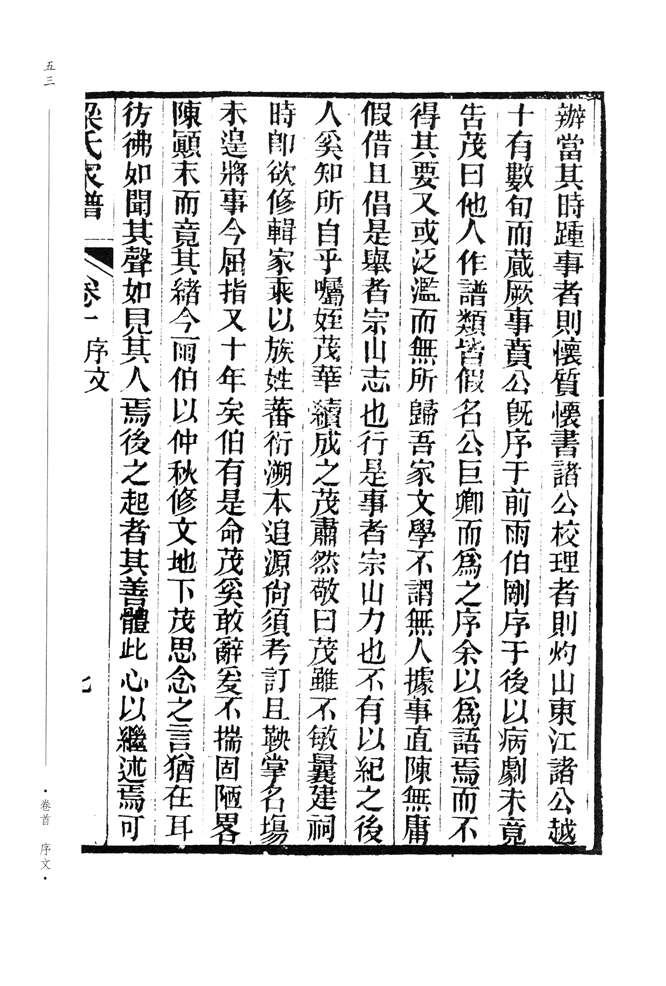 辦當其時踵事者則懷質懷書諸公校理者則灼山東江諸公越
十有數旬而蕆厥事賁公旣序于前雨伯剛序于後以病劇未竟
吿茂曰他人作譜類皆假名公巨卿而爲之序余以爲語焉而不
得其要又或泛濫而無所歸吾家文學不謂無人據事直陳無庸
假借且倡是舉者宗山志也行是事者宗山力也不有以紀之後
人奚知所自乎囑姪茂華續成之茂肅然敬曰茂雖不敏曩建祠
時卽欲修輯家乘以族姓蕃衍溯本追源尙須考訂且鞅掌名塲
未遑將事今屈指又十年矣伯有是命茂奚敢辭爰不揣固陋畧
陳顚末而竟其緒今雨伯以仲秋修文地下茂思念之言猶在耳
彷彿如聞其聲如見其人焉後之起者其善體此心以繼述焉可
梁氏家譜 卷一 序文 七
五三
·卷首 序文·